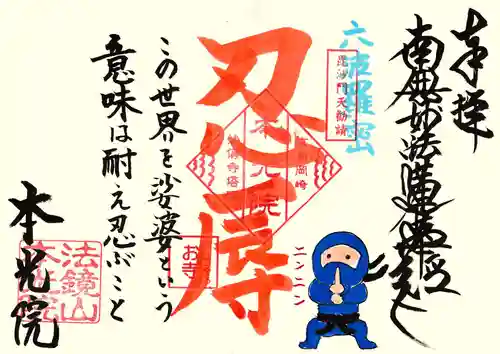 奉拝
南無妙法蓮華経
六波羅密
毘沙門天勧請
忍辱
本光院
岡崎
お寺
ニンニン
この世界を娑婆という
意味は耐え忍ぶこと
法鏡山
本光院